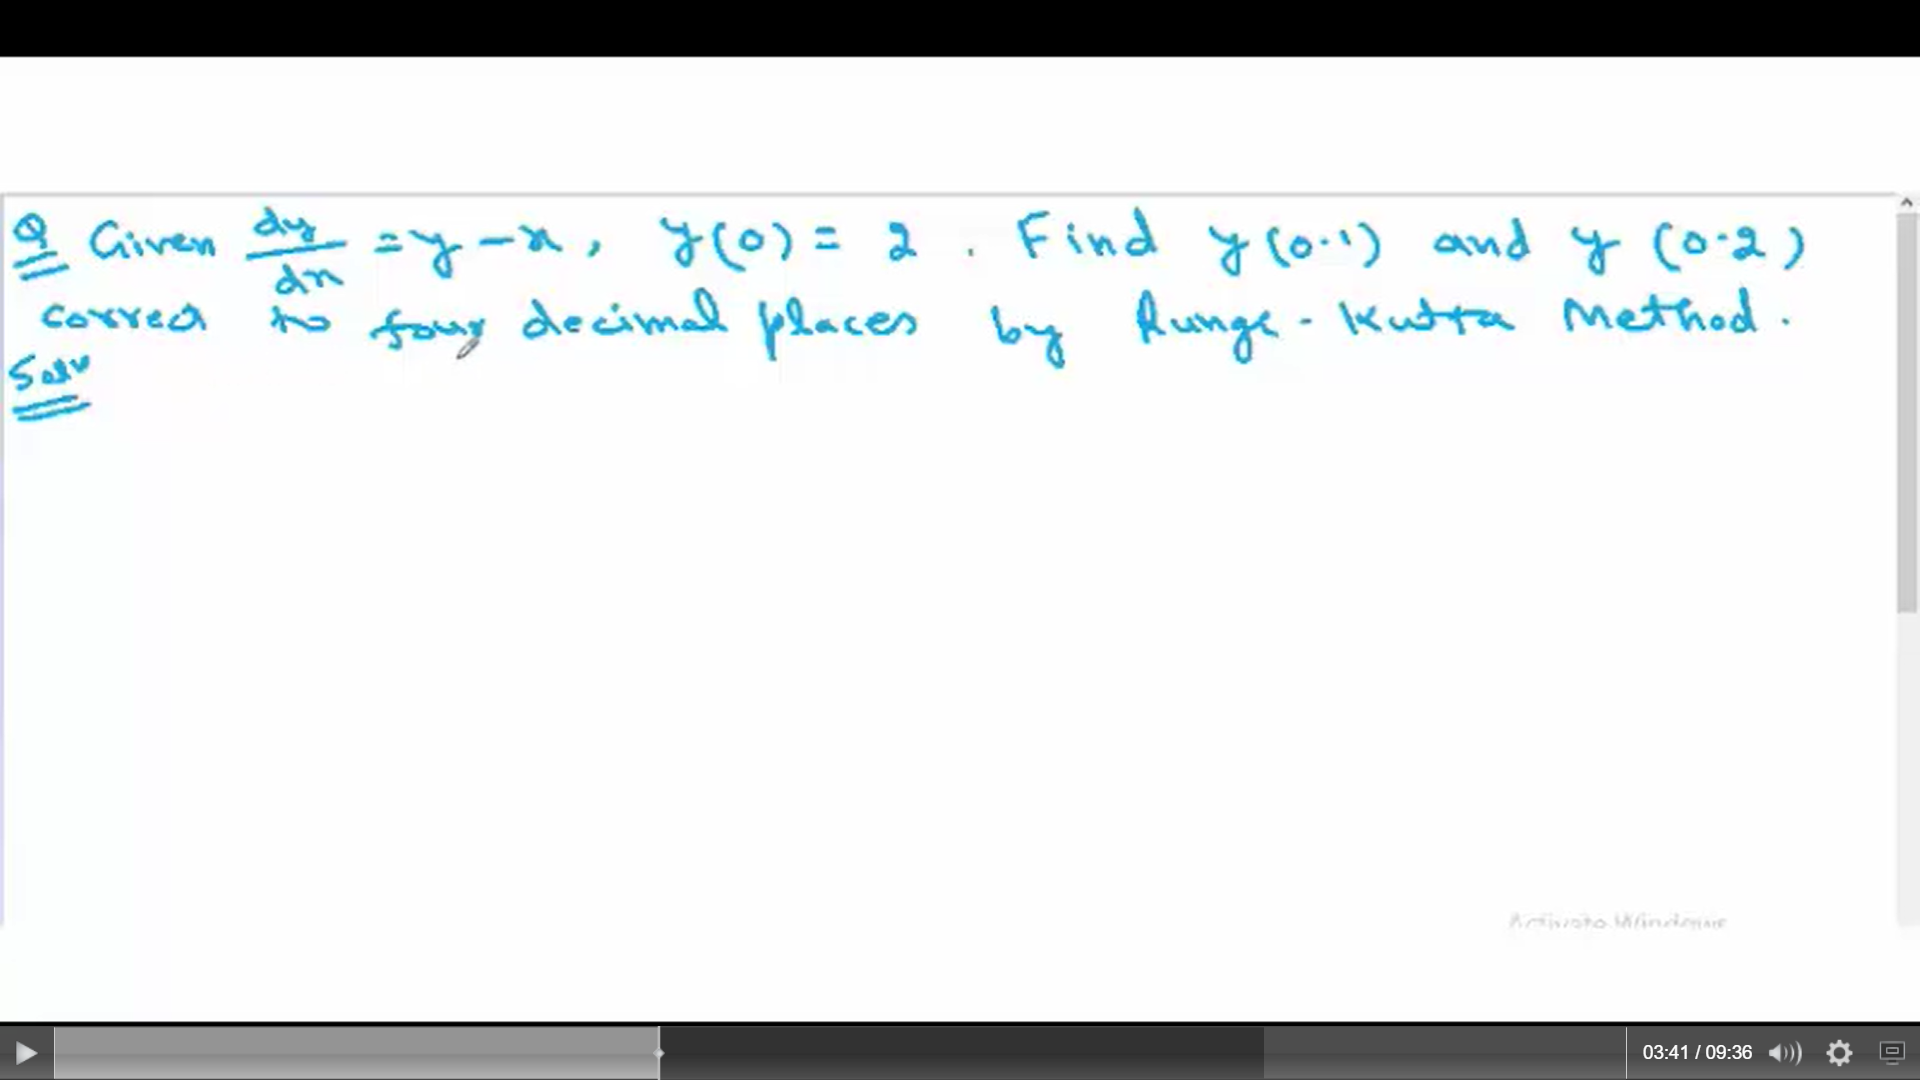 Q Given dy/dx = y - x, y(0) = 2. Find y(0.1) and y(0.2)
correct to four decimal places by Runge-Kutta Method.
Soln
Activate Windows
03:41 / 09:36